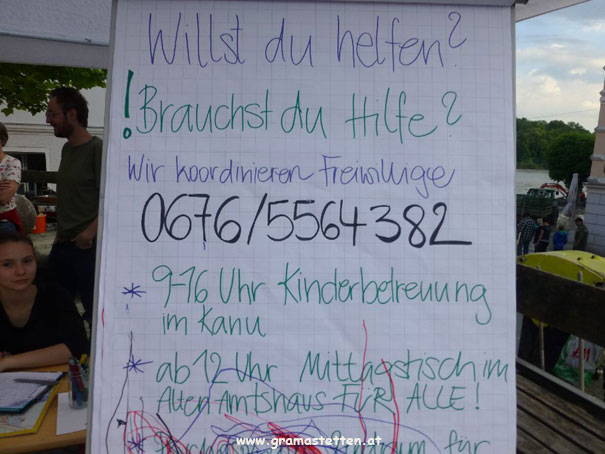 Willst du helfen?
! Brauchst du Hilfe?
Wir koordinieren Freiwillige
0676/5564382
* 9-16 Uhr Kinderbetreuung
im Kanu
* ab 12 Uhr Mittagstisch im
Alten Amtshaus FÜR ALLE!
für
www.gramastetten.at